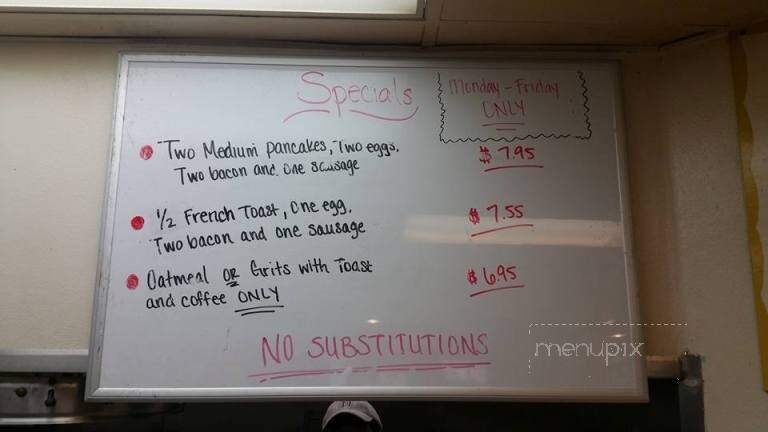 Specials
Monday - Friday
ONLY
Two Medium pancakes, Two eggs,
Two bacon and one sausage
$ 7.95
1/2 French Toast, One egg,
Two bacon and one sausage
$ 7.55
Oatmeal OR Grits with Toast
and coffee ONLY
$ 6.95
NO SUBSTITUTIONS
menupix